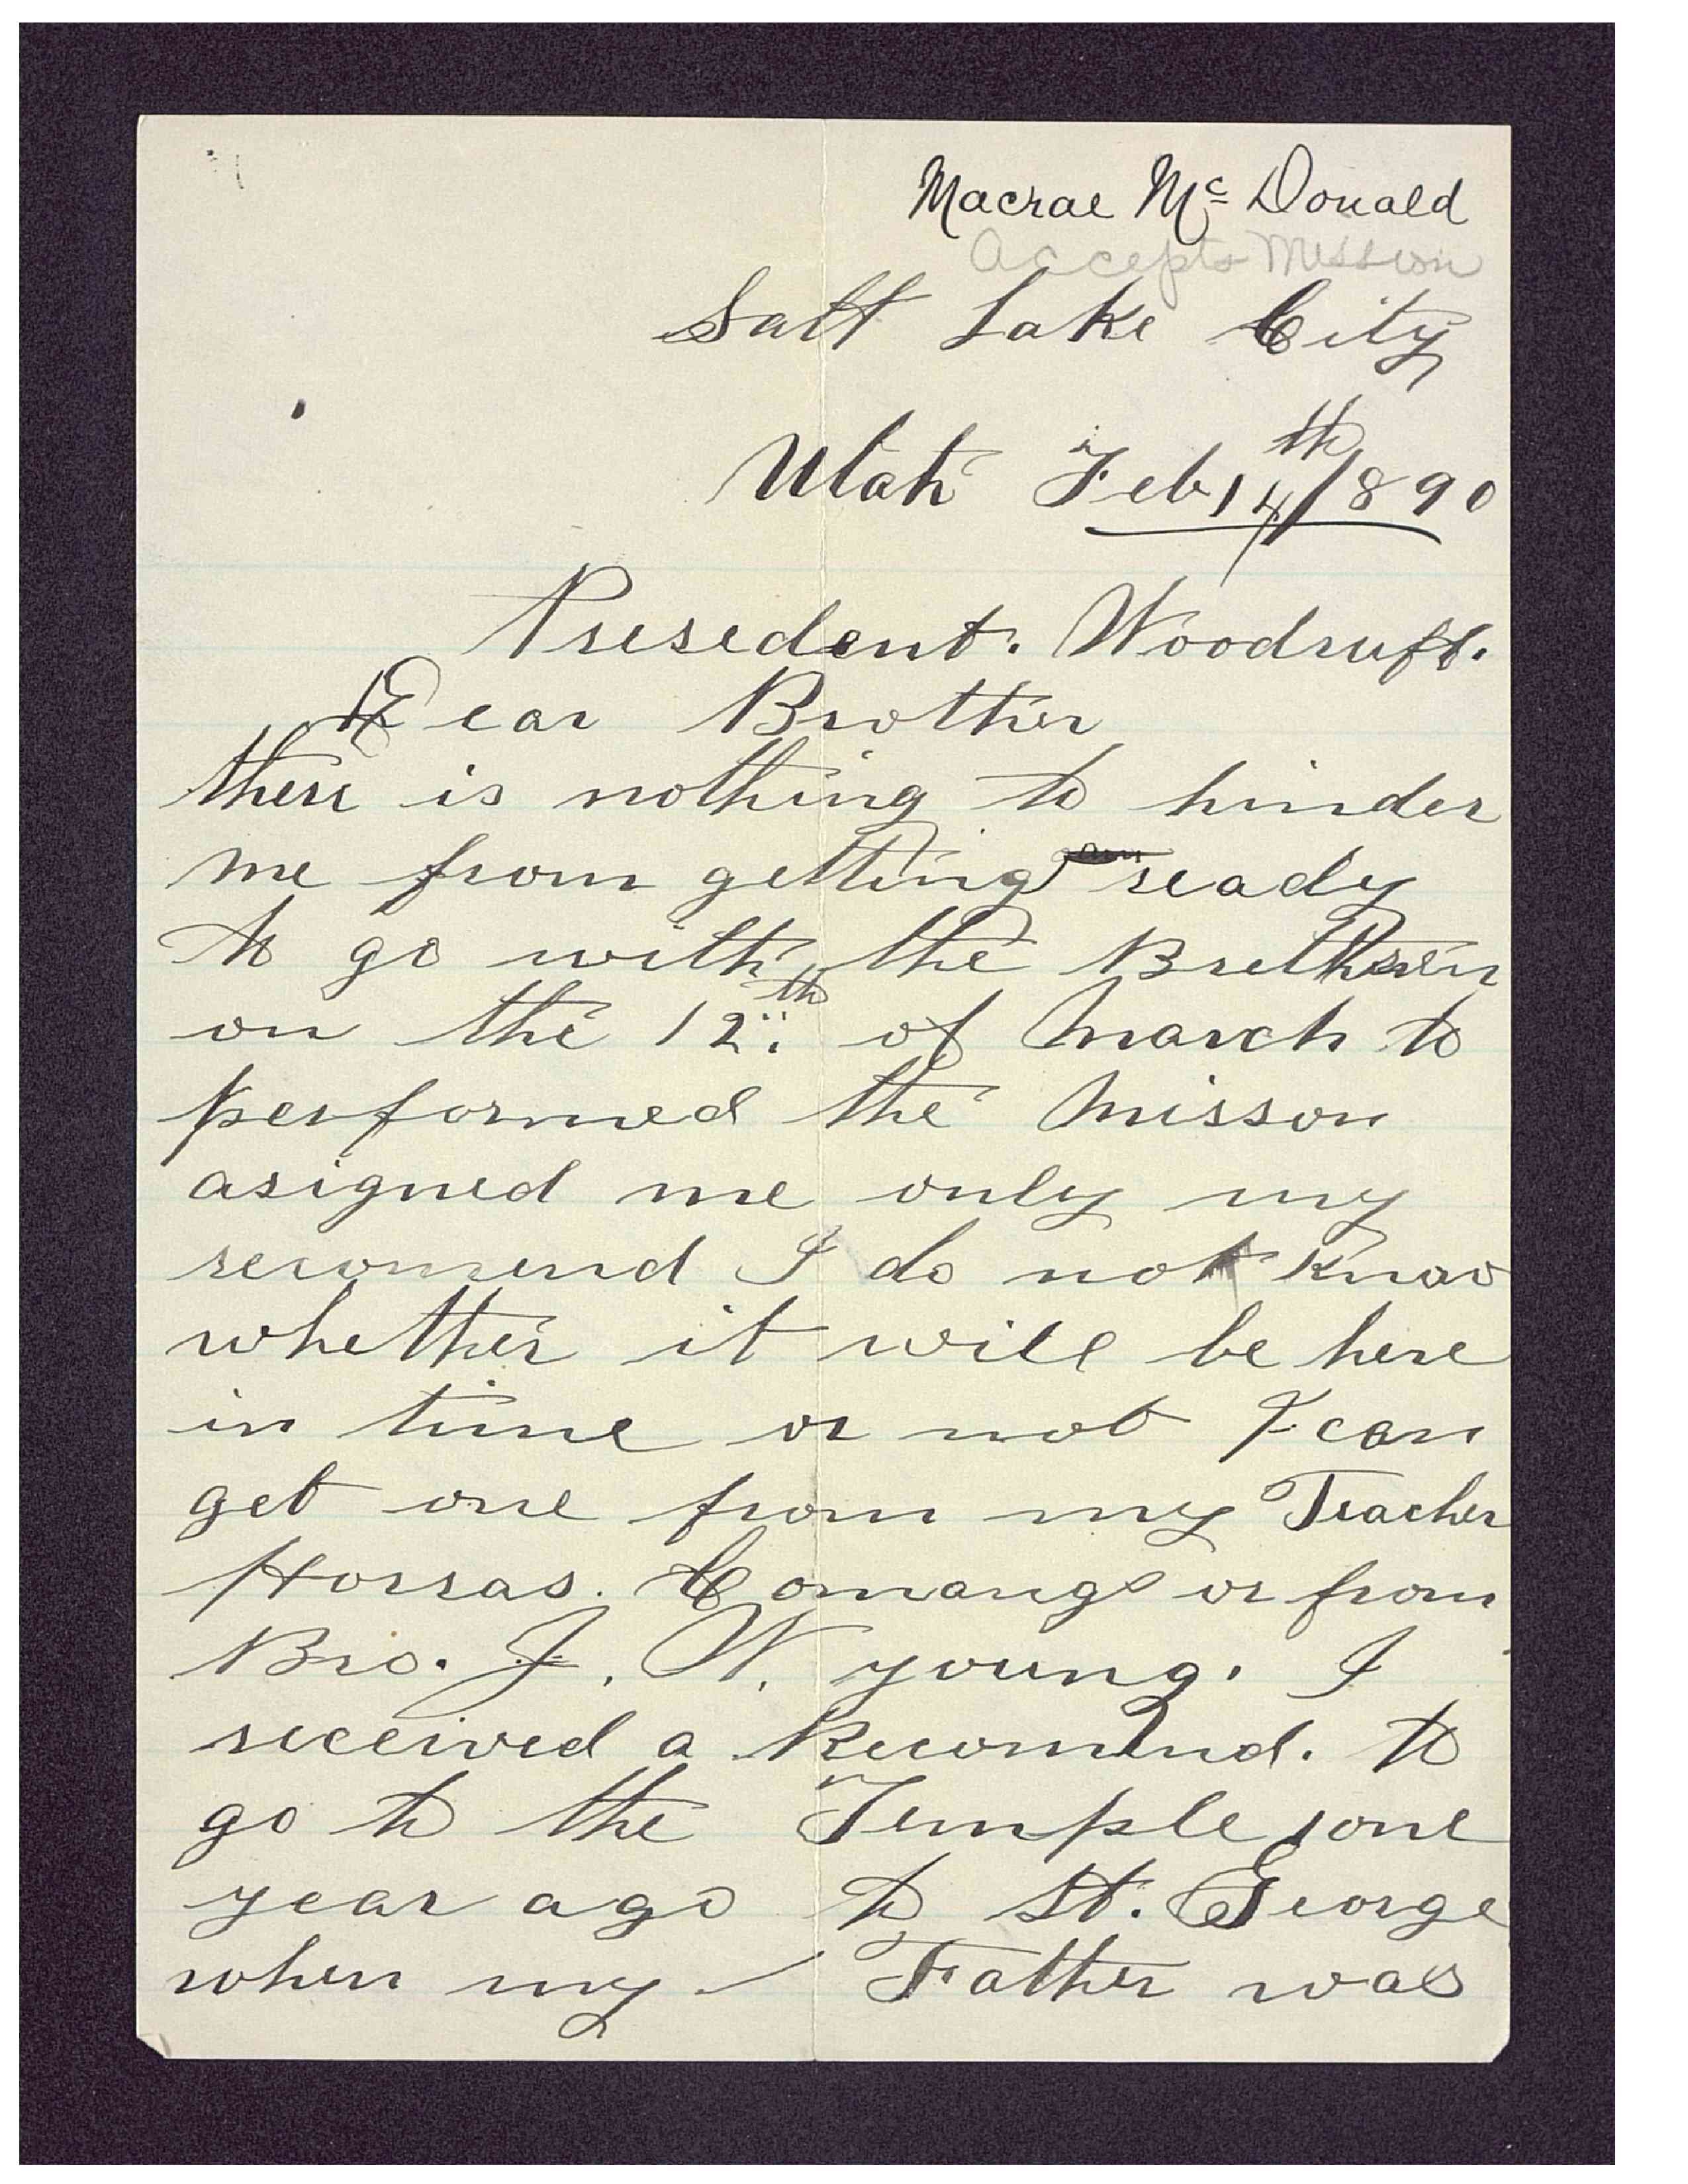 Macrae Mc Donald
Accepts Mission
Salt Lake City
Utah Feb 14th/1890
Presedent. Woodruff.
Dear Brother
there is nothing to hinder
me from getting ready
to go with the Brethren
on the 12th of March to
performed the Misson
asigned me only my
recomend I do not know
whether it will be here
in time or not I can
get one from my Teacher
Horras. or from
Bro. J. W. young. I
received a Recomend. to
go to the Temple one
year ago to St. George
when my Father was